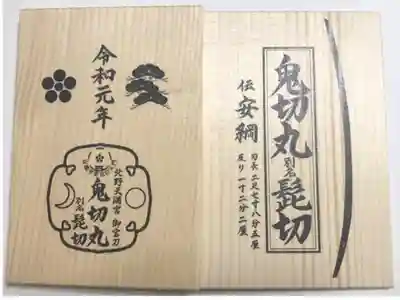 鬼切丸 別名 髭切
伝 安綱
刃長 二尺七寸八分五厘
反り 一寸二分二厘
令和元年
北野天満宮 御宝刀
鬼切丸
別名 髭切